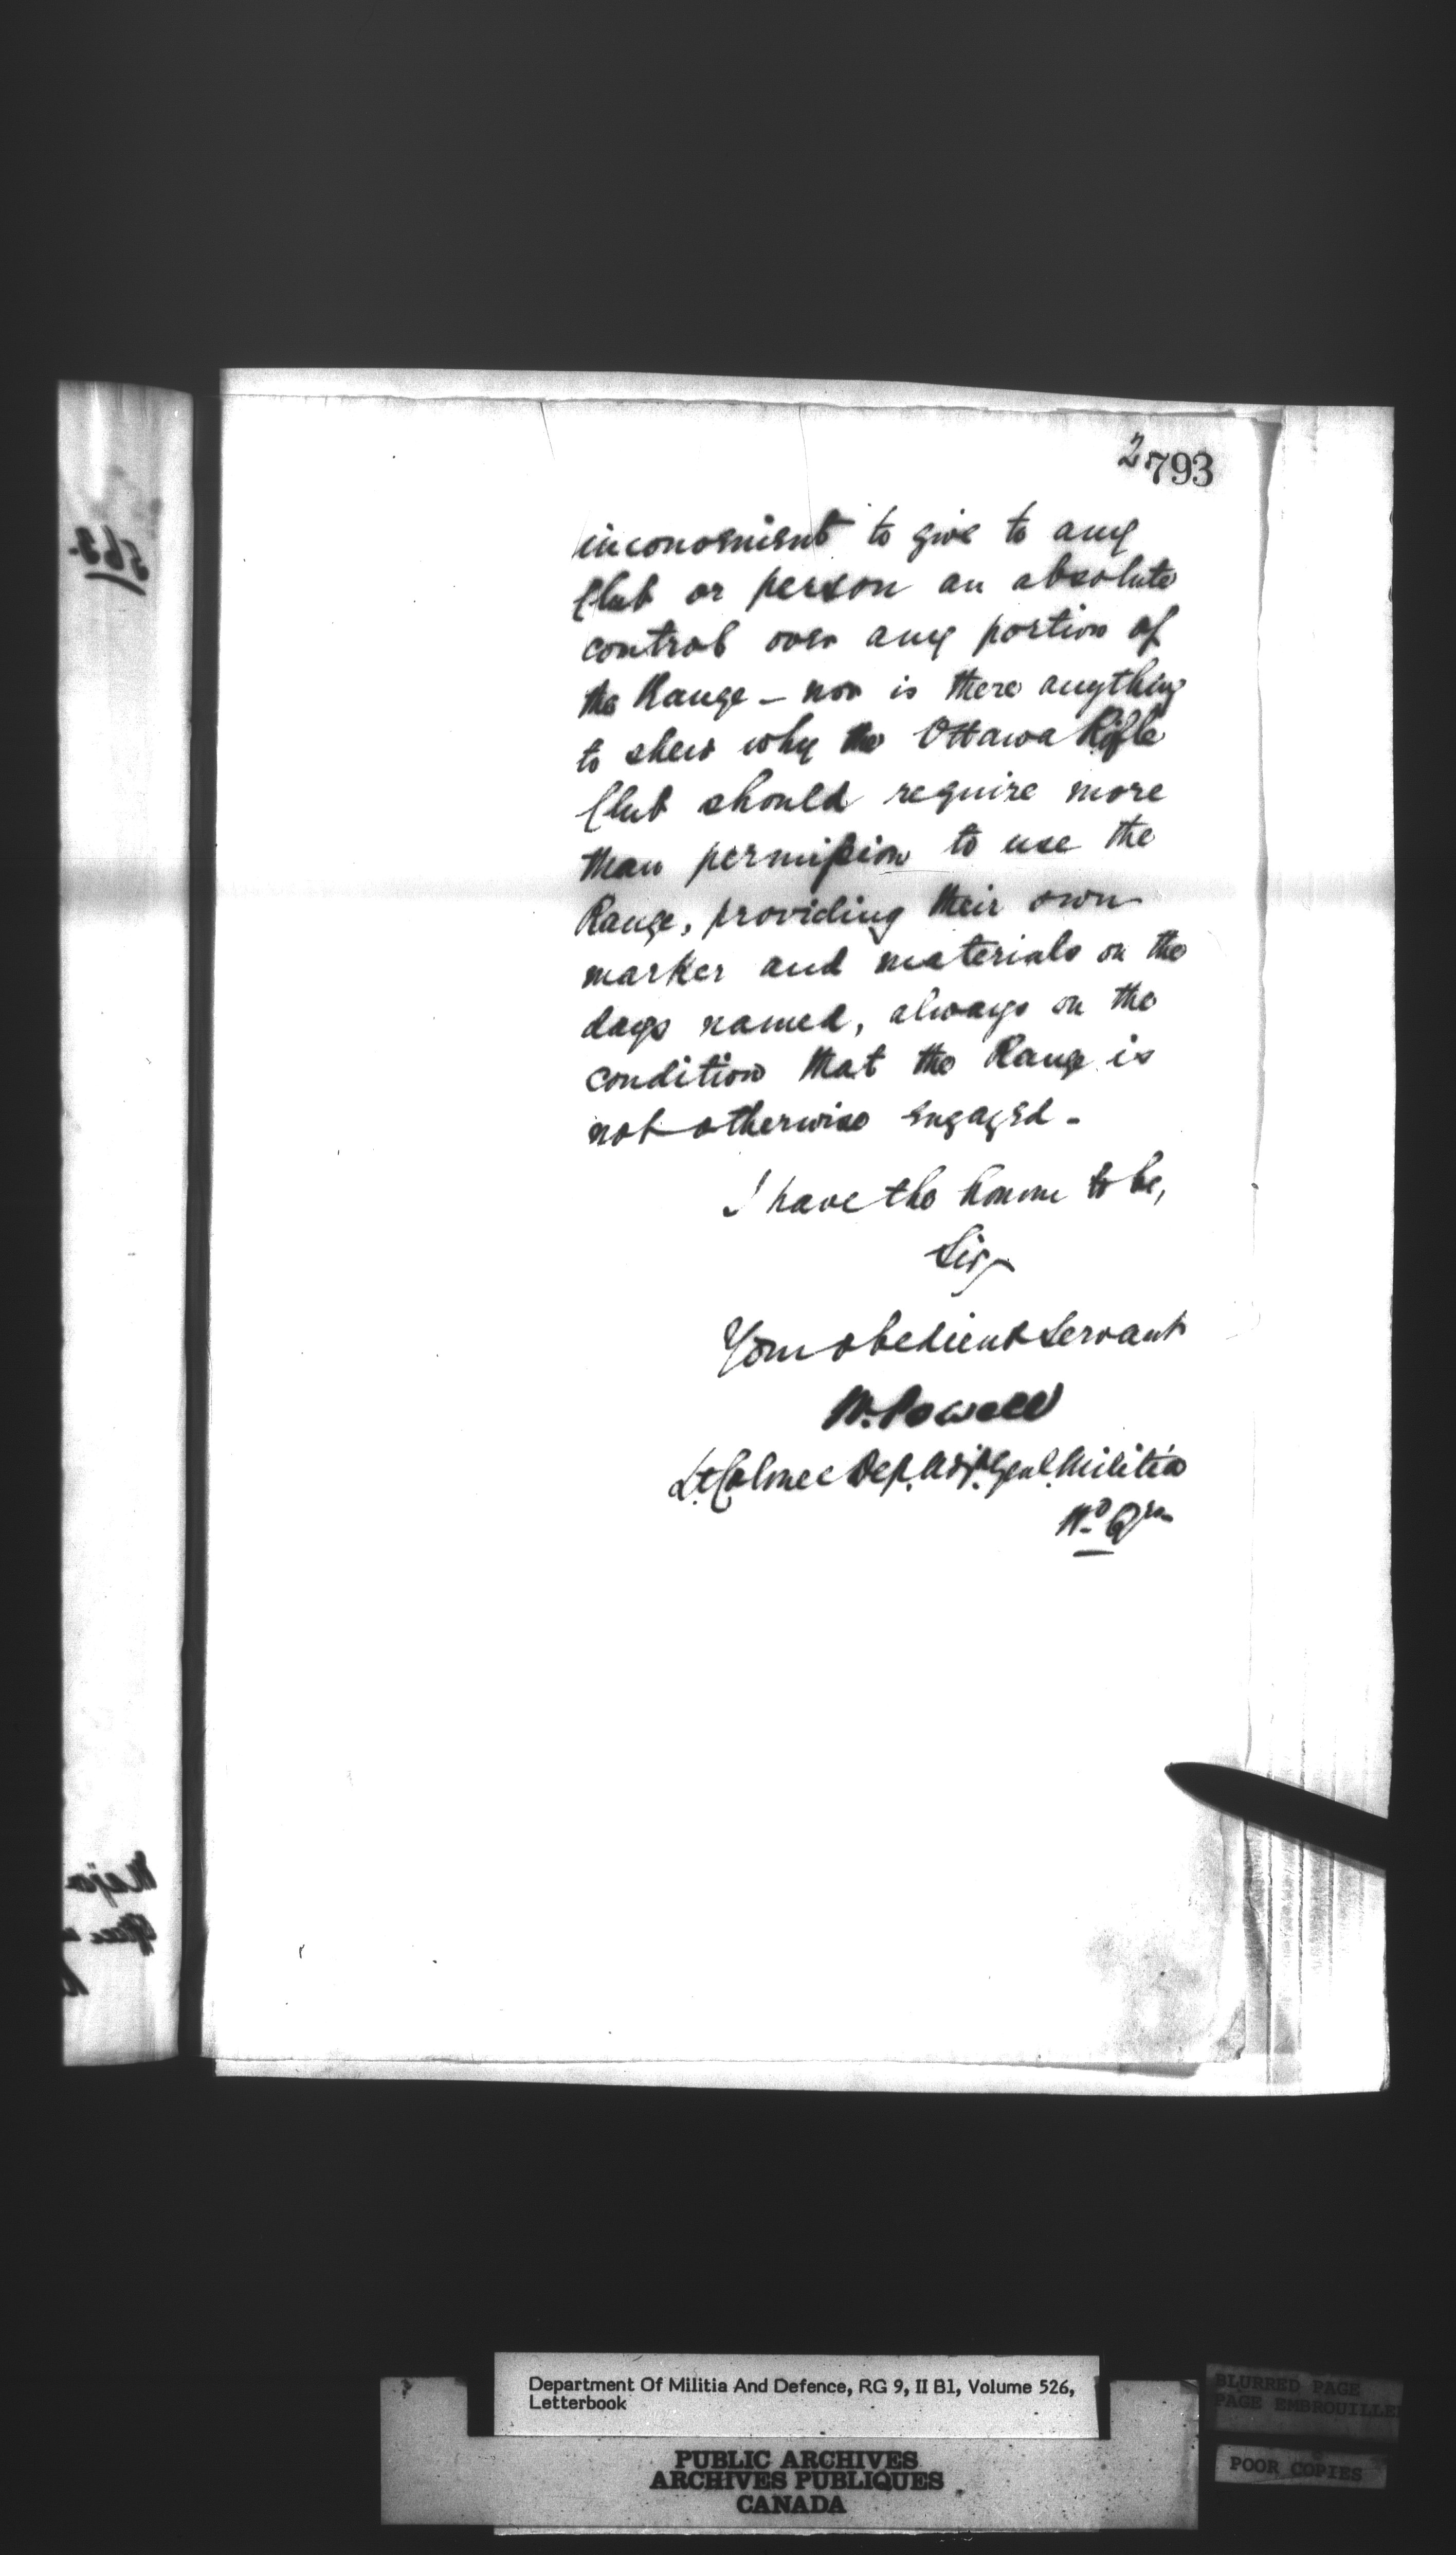 2
793
inconvenient to give to any
Club or person an absolute
control over any portion of
the Range – nor is there anything
to shew why the Ottawa Rifle
Club should require more
than permission to use the
Range, providing their own
marker and materials on the
days named, always on the
condition that the Range is
not otherwise engaged –
I have the honour to be,
Sir,
Your obedient Servant
W. Powell
Lt Colonel Dep. Adjt. Genl. Militia
Hd Qrs
563
Major
Department Of Militia And Defence, RG 9, II B1, Volume 526,
Letterbook
PUBLIC ARCHIVES
ARCHIVES PUBLIQUES
CANADA
BLURRED PAGE
PAGE EMBROUILLE
POOR COPIES